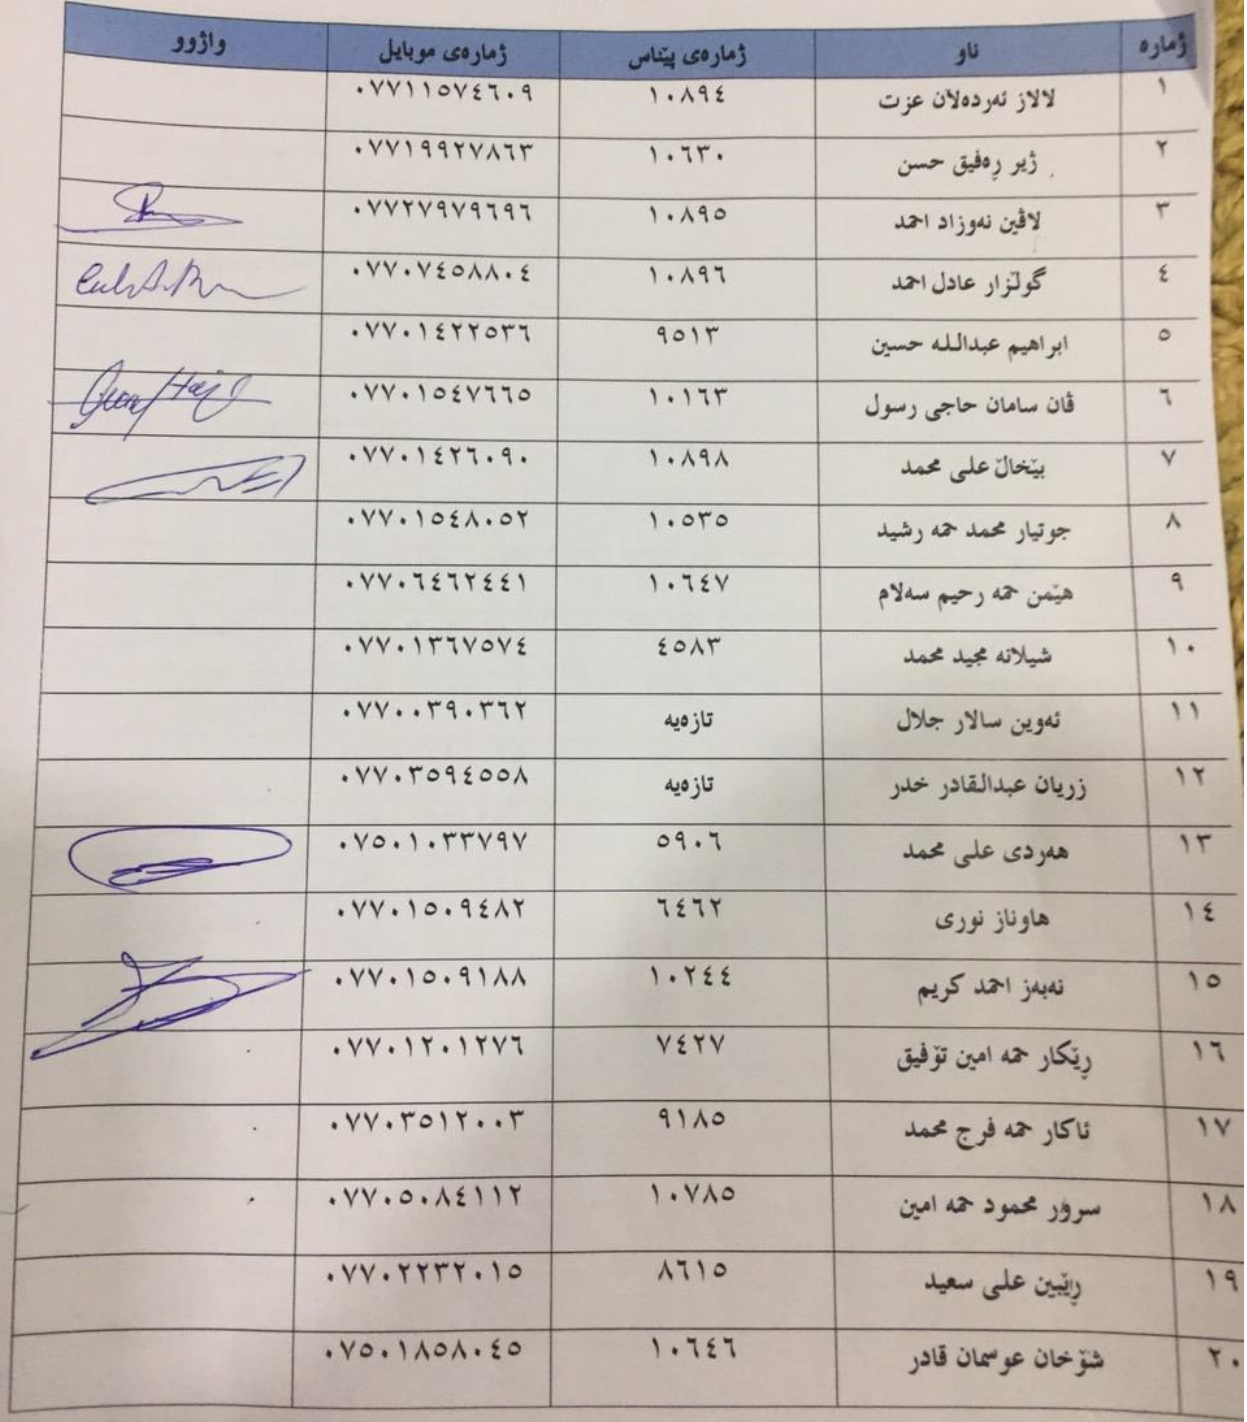 ژمارە ناو ژمارەی پێناس ژمارەی موبایل واژوو
١ لالاز ئەردەلان عزت ١٠٨٩٤ ٠٧٧١١٥٧٤٦٠٩
٢ ژیر ڕەفیق حسن ١٠٦٣٠ ٠٧٧١٩٩٢٧٨٦٣
٣ لاڤین نەوزاد احمد ١٠٨٩٥ ٠٧٧٢٧٩٧٩٦٩٦
٤ گوڵزار عادل احمد ١٠٨٩٦ ٠٧٧٠٧٤٥٨٨٠٤
٥ ابراهیم عبداللە حسین ٩٥١٣ ٠٧٧٠١٤٢٢٥٣٦
٦ ڤان سامان حاجی رسول ١٠١٦٣ ٠٧٧٠١٥٤٧٦٦٥
٧ بێخاڵ علی محمد ١٠٨٩٨ ٠٧٧٠١٤٢٦٠٩٠
٨ جوتیار محمد حمە رشید ١٠٥٣٥ ٠٧٧٠١٥٤٨٠٥٢
٩ هێمن حمە رحیم سەلام ١٠٦٤٧ ٠٧٧٠٦٤٦٢٤٤١
١٠ شیلانە مجید محمد ٤٥٨٣ ٠٧٧٠١٣٦٧٥٧٤
١١ ئەوین سالار جلال تازەیە ٠٧٧٠٠٣٩٠٣٦٢
١٢ زریان عبدالقادر خدر تازەیە ٠٧٧٠٣٥٩٤٥٥٨
١٣ هەردی علی محمد ٥٩٠٦ ٠٧٥٠١٠٣٣٧٩٧
١٤ هاوناز نوری ٦٤٦٢ ٠٧٧٠١٥٠٩٤٨٢
١٥ نەبەز احمد کریم ١٠٢٤٤ ٠٧٧٠١٥٠٩١٨٨
١٦ ڕێکار حمە امین تۆفیق ٧٤٢٧ ٠٧٧٠١٢٠١٢٧٦
١٧ ئاکار حمە فرج محمد ٩١٨٥ ٠٧٧٠٣٥١٢٠٠٣
١٨ سرور محمود حمە امین ١٠٧٨٥ ٠٧٧٠٥٠٨٤١١٢
١٩ ڕێبین علی سعید ٨٦١٥ ٠٧٧٠٢٢٣٢٠١٥
٢٠ شۆخان عوسمان قادر ١٠٦٤٦ ٠٧٥٠١٨٥٨٠٤٥